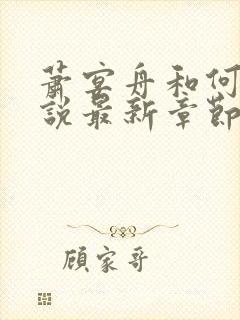 蕭宴舟和何
說最新章節
顧家哥